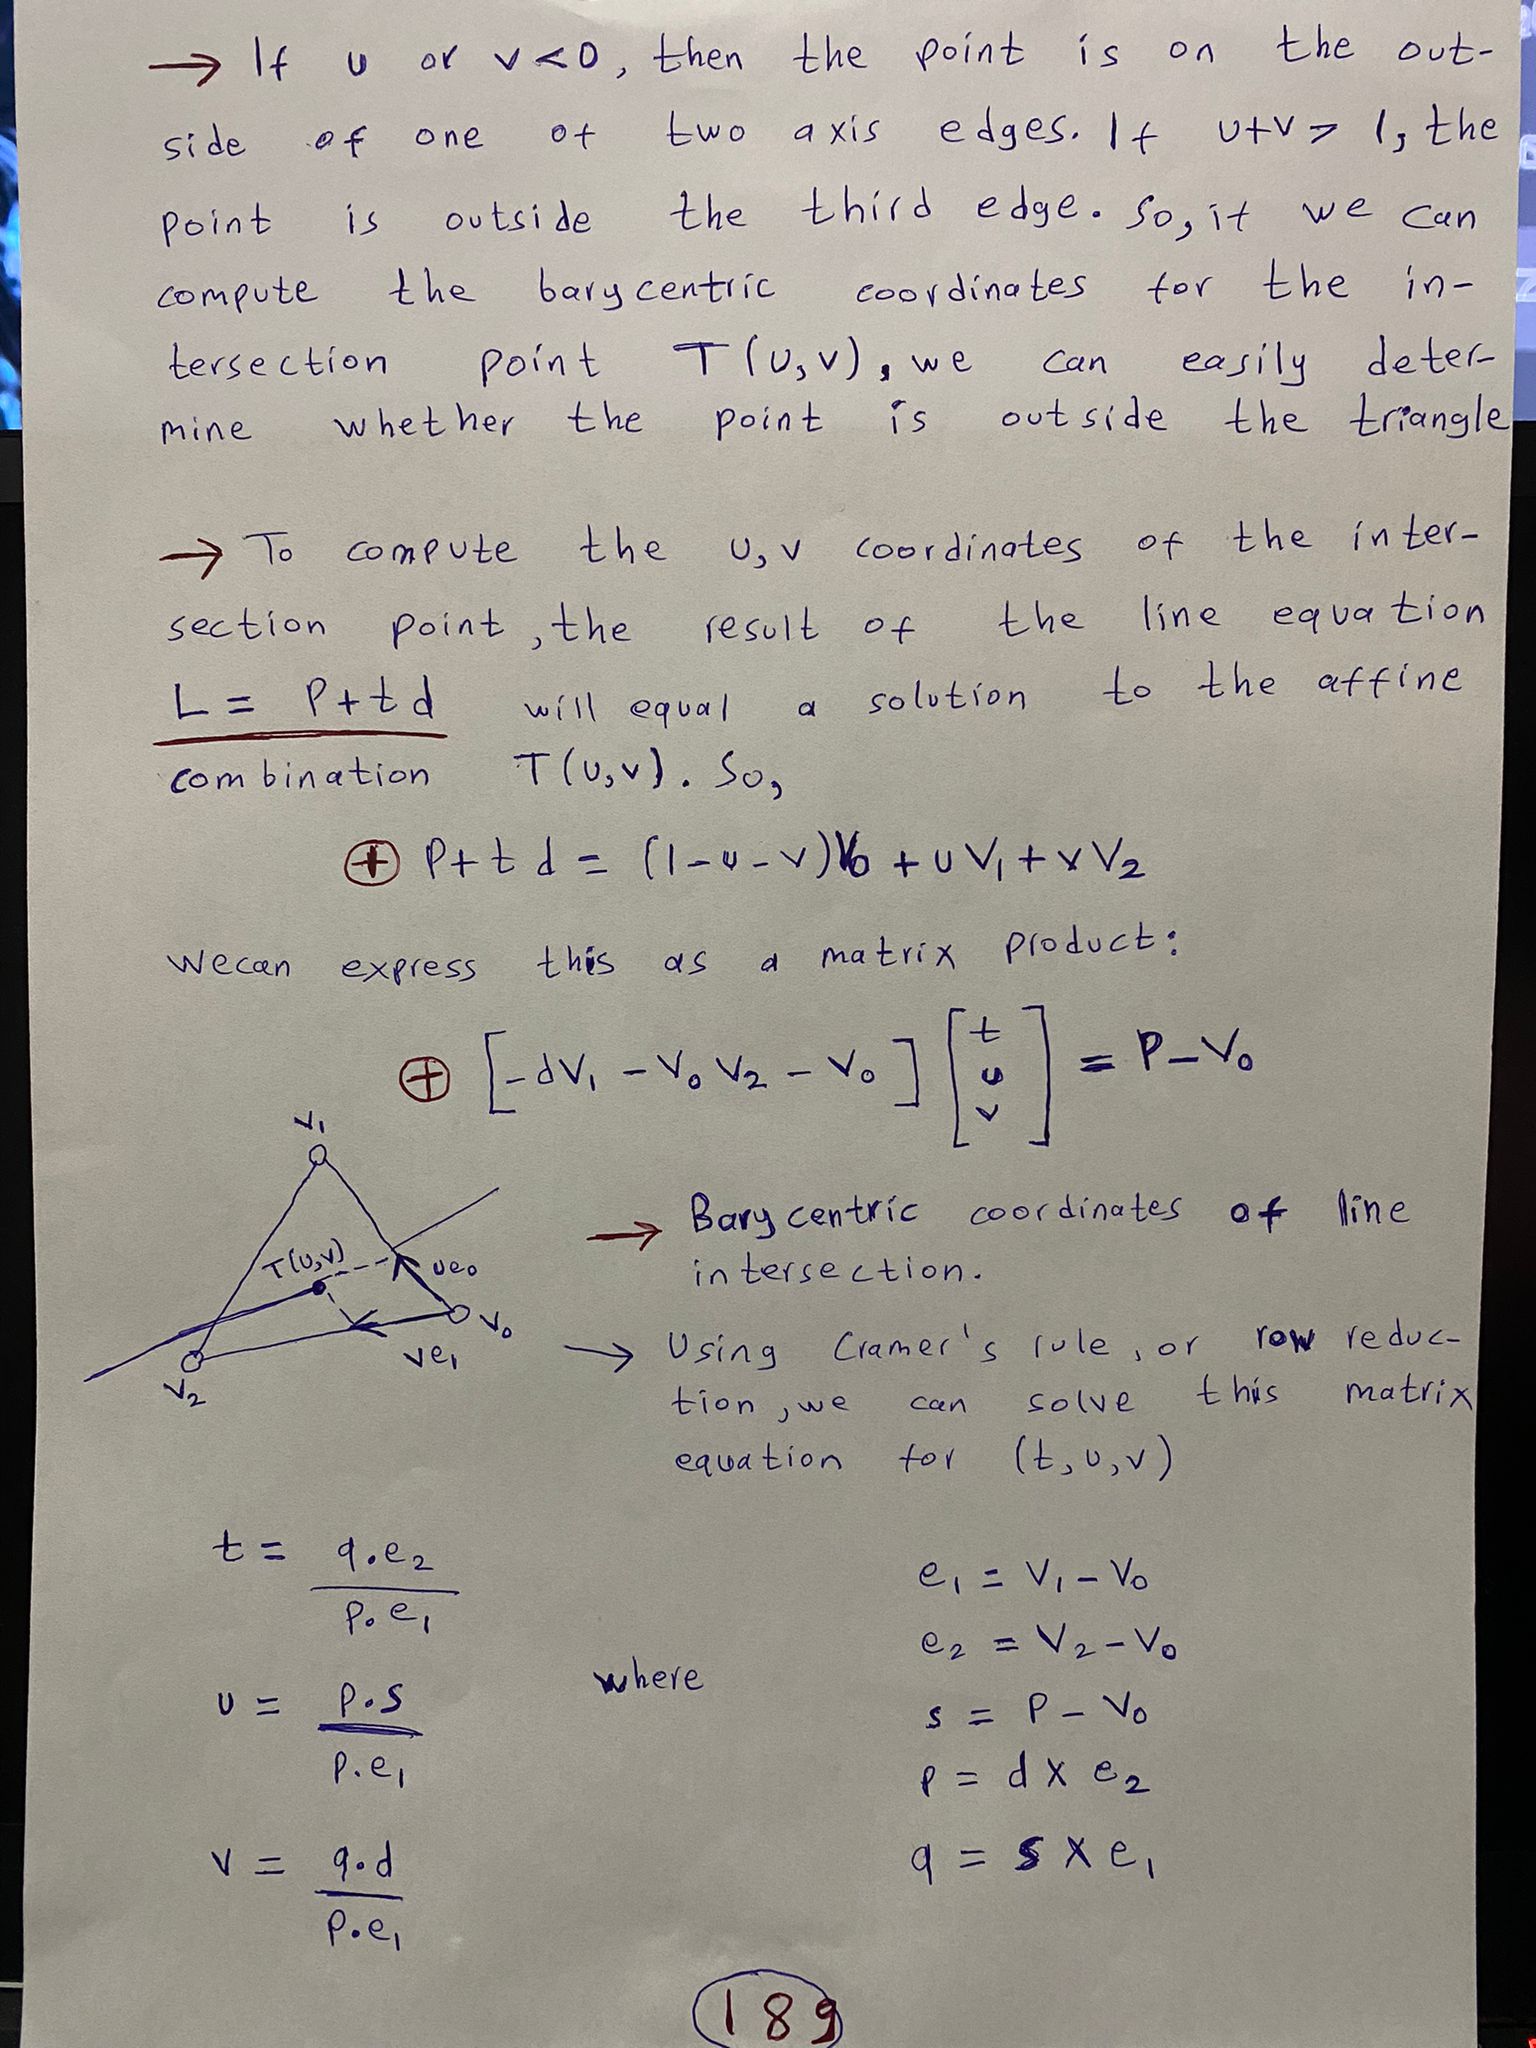 → If u or v<0, then the point is on the out-
side of one of two axis edges. If u+v > 1, the
point is outside the third edge. So, if we can
compute the barycentric coordinates for the in-
tersection point T(u,v), we can easily deter-
mine whether the point is outside the triangle
→ To compute the u,v coordinates of the inter-
section point, the result of the line equation
L = P+td will equal a solution to the affine
combination T(u,v). So,
⊕ P+td = (1-u-v)V₀ + uV₁ + vV₂
Wecan express this as a matrix product:
⊕ [-dV₁ - V₀ V₂ - V₀] [t u v] = P-V₀
V₁
T(u,v)
ue₀
V₀
ve₁
V₂
→ Barycentric coordinates of line
intersection.
→ Using Cramer's rule, or row reduc-
tion, we can solve this matrix
equation for (t,u,v)
t = q.e₂ / p.e₁
u = p.s / p.e₁
v = q.d / p.e₁
where
e₁ = V₁-V₀
e₂ = V₂-V₀
s = P-V₀
p = d x e₂
q = s x e₁
189